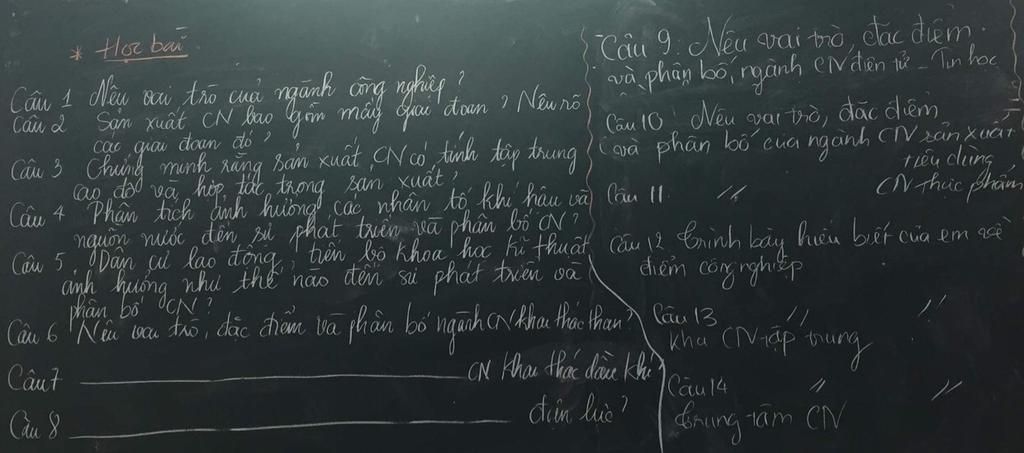 * Học bài
Câu 1 Nêu vai trò của ngành công nghiệp?
Câu 2 Sản xuất CN bao gồm mấy giai đoạn? Nêu rõ
các giai đoạn đó?
Câu 3 Chứng minh rằng sản xuất CN có tính tập trung
cao độ và hợp tác trong sản xuất?
Câu 4 Phân tích ảnh hưởng các nhân tố khí hậu và
nguồn nước đến sự phát triển và phân bố CN?
Câu 5, Dân cư lao động, tiến bộ khoa học kĩ thuật
ảnh hưởng như thế nào đến sự phát triển và
phân bố CN?
Câu 6 Nêu vai trò, đặc điểm và phân bố ngành CN khai thác than?
Câu 7 ———— CN khai thác dầu khí
Câu 8 ———— điện lực?
Câu 9. Nêu vai trò, đặc điểm
và phân bố, ngành CN điện tử - Tin học
Câu 10 Nêu vai trò, đặc điểm
và phân bố của ngành CN sản xuất
tiêu dùng,
Câu 11. // CN thực phẩm
Câu 12 Trình bày hiểu biết của em về
điểm công nghiệp
Câu 13 // //
khu CN tập trung
Câu 14 // //
Trung tâm CN